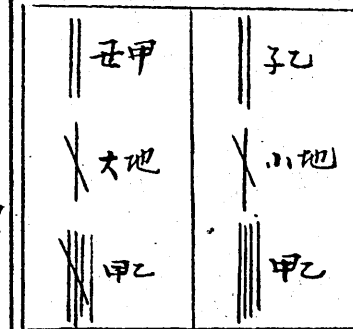 丑甲 子乙
大地 小地
甲乙 甲乙